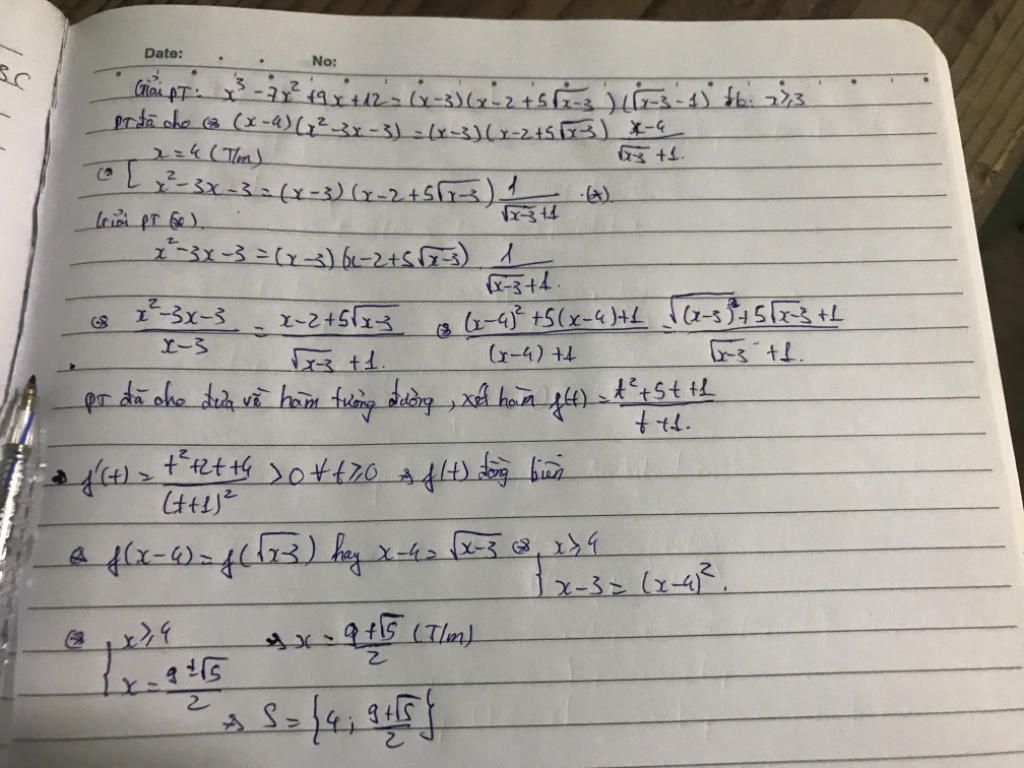 BC
Date: No:
Giải PT: x³ - 7x² + 9x + 12 = (x-3)(x-2+5√(x-3))(√(x-3) - 1) đk: x ≥ 3
PT đã cho ⇔ (x-4)(x² - 3x - 3) = (x-3)(x-2+5√(x-3)) (x-4)/(√(x-3) + 1).
⇔ [ x = 4 (T/m)
x² - 3x - 3 = (x-3)(x-2+5√(x-3)) 1/(√(x-3) + 1) (*)
Giải PT (*).
x² - 3x - 3 = (x-3)(x-2+5√(x-3)) . 1/(√(x-3) + 1).
⇔ (x² - 3x - 3)/(x-3) = (x-2+5√(x-3))/(√(x-3) + 1). ⇔ ((x-4)² + 5(x-4) + 1)/((x-4) + 1) = (√(x-3)² + 5√(x-3) + 1)/(√(x-3) + 1).
PT đã cho đưa về hàm tương đương, xét hàm f(t) = (t² + 5t + 1)/(t + 1).
⇒ f'(t) = (t² + 2t + 4)/(t+1)² > 0 ∀ t ≥ 0 ⇒ f(t) đồng biến
⇔ f(x-4) = f(√(x-3)) hay x-4 = √(x-3) ⇔ { x ≥ 4
x-3 = (x-4)².
⇔ { x ≥ 4 ⇒ x = (9+√5)/2 (T/m)
x = (9±√5)/2
⇒ S = {4; (9+√5)/2}